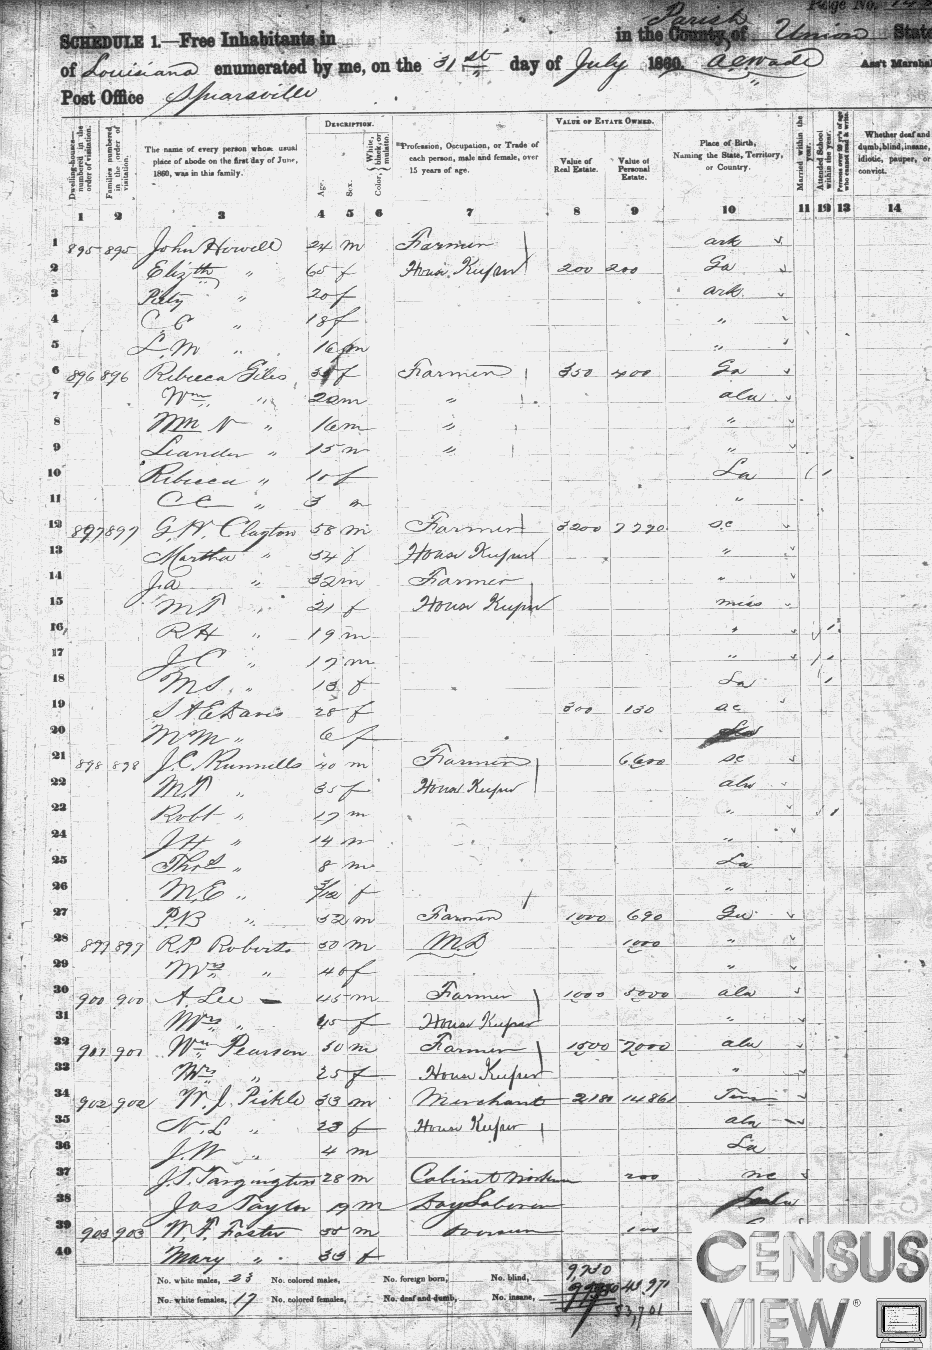 Page No.
SCHEDULE 1.—Free Inhabitants in Parish in the County of Union State
of Louisiana enumerated by me, on the 31st day of July 1860. Ass't Marshal
Post Office Spearsville
DESCRIPTION.
VALUE OF ESTATE OWNED.
Dwelling-houses—numbered in the order of visitation.
Families numbered in the order of visitation.
The name of every person whose usual place of abode on the first day of June, 1860, was in this family.
Age.
Sex.
Color, White, black, or mulatto.
Profession, Occupation, or Trade of each person, male and female, over 15 years of age.
Value of Real Estate.
Value of Personal Estate.
Place of Birth, Naming the State, Territory, or Country.
Married within the year.
Attended School within the year.
Persons over 20 y'rs of age who cannot read & write.
Whether deaf and dumb, blind, insane, idiotic, pauper, or convict.
1 2 3 4 5 6 7 8 9 10 11 12 13 14
1 895 895 John Howell 24 m Farmer ark
2 Elizth " 65 f House Keeper 200 200 Ga
3 Piety " 20 f ark
4 " 18 f "
5 L. M " 16 m "
6 896 896 Rebecca Giles f Farmer 350 400 Ga
7 Wm " 20 m " ala
8 Wm N " 16 m " "
9 Leander " 15 m " "
10 Rebecca " 10 f La
11 C C " 3 m "
12 897 897 G. W. Clayton 58 m Farmer 3200 sc
13 Martha " 54 f House Keeper "
14 J. a " 32 m Farmer "
15 " 21 f House Keeper miss
16 R H " 19 m "
17 J. C " 17 m "
18 M S. " 13 f La
19 S A E Davis 28 f 300 130
20 M M " 6 f
21 898 898 J. C. Runnells 40 m Farmer 6600 sc
22 " 35 f House Keeper ala
23 Robt " 17 m "
24 J H " 14 m "
25 Thos " 8 m La
26 M. E " f "
27 P. B " 32 m Farmer 1000 690
28 R. P. Roberts 50 m M. D 1000 "
29 Mrs " 40 f "
30 900 900 A. Lee 45 m Farmer 1000 5000 ala
31 Mrs " 45 f House Keeper "
32 901 901 Wm Pearson 50 m Farmer 1500 7000 ala
33 Mrs " 25 f House Keeper "
34 902 902 W. J. Pickle 33 m Merchant 2180 14861 Ten
35 N. L " 23 f House Keeper ala
36 J. W " 4 m La
37 J. T. Targington 28 m Cabinet Workman 200 nc
38 Jas Taylor 19 m Day Laborer
39 903 903 W. F. Foster 35 m Overseer 100
40 Mary " 33 f
No. white males, 23 No. colored males, No. foreign born, No. blind, 9,730
No. white females, 17 No. colored females, No. deaf and dumb, No. insane,
CENSUS
VIEW®